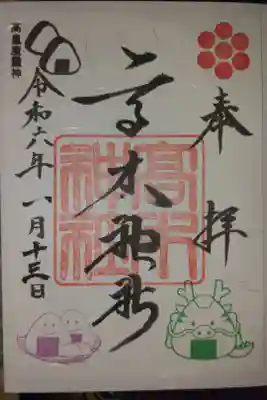 奉拝
高木神社
高木神社
令和六年一月十三日
高皇産霊神